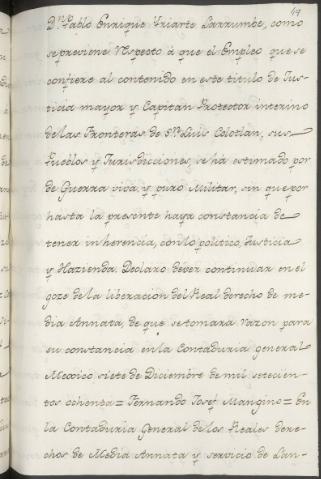 47
Dn. Pablo Enrique Yriarte Larrumbe, como
se previene respecto à que el Empleo que se
confiere al contenido en este titulo de Jus-
ticia mayor y Capitan Protector interino
de las Fronteras de Sn. Luis Colotlan, sus
Pueblos y Jurisdicciones, se ha estimado por
de Guerra viva, y puro Militar, sin que por
hasta la presente haya constancia de
tener inherencia, con lo politico, Justicia
y Hazienda. Declaro dever continuar en el
goze de la liberacion del Real derecho de me-
dia Annata, de que se tomara razon para
su constancia en la Contaduria general
Mexico siete de Diciembre de mil setecien-
tos ochenta = Fernando Josef Mangino = En
la Contaduria General de los Reales dere-
chos de Media Annata y servicio de Lan-